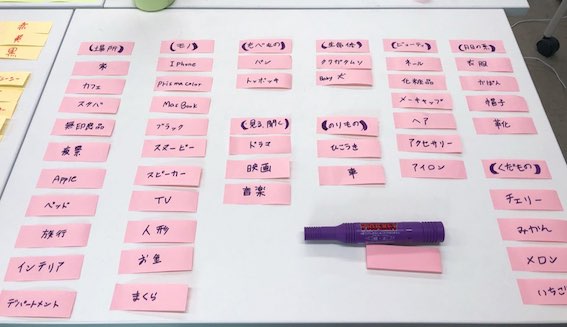 (場所)
家
カフェ
スタバ
無印良品
夜景
Apple
ベッド
旅行
インテリア
デパートメント
(モノ)
IPhone
Prismacolor
MacBook
ブラック
スヌーピー
スピーカー
TV
人形
お金
まくら
(たべもの)
パン
トッポッキ
(見る、聞く)
ドラマ
映画
音楽
(生命体)
クワガタムシ
Baby 犬
(のりもの)
ひこうき
車
(ビューティ)
ネール
化粧品
メーキャップ
ヘア
アクセサリー
アイロン
衣服
かばん
帽子
靴
(くだもの)
チェリー
みかん
メロン
いちご